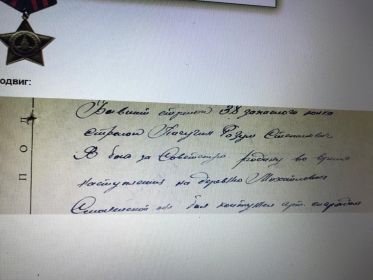 одвиг:
П О Д
Бывший стрелок 38 запасного полка
стрелой Пасугин Разум Степанович
В бою за Советскую родину во время
наступления на деревню Михайловка
Смоленской обл был контужен арт. снарядом